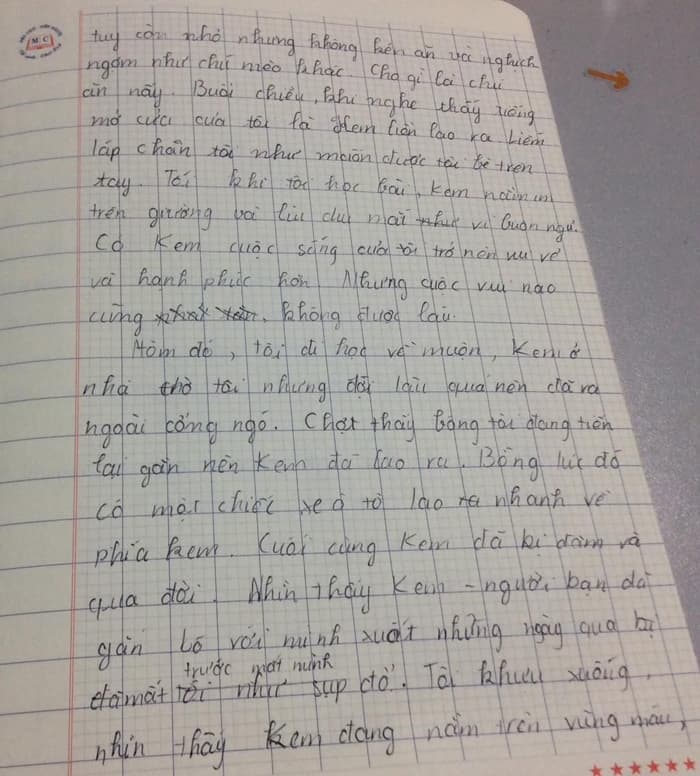 M.C
tuy còn nhỏ nhưng không kén ăn và nghịch
ngợm như chú mèo khác. Cho gì là chú
ăn nấy. Buổi chiều, khi nghe thấy tiếng
mở cửa của tôi là Kem liền lao ra liếm
láp chân tôi như muốn được tôi bế trên
tay. Tối khi tôi học bài, Kem nằm im
trên giường và liu diu mắt vì buồn ngủ.
Có Kem cuộc sống của tôi trở nên vui vẻ
và hạnh phúc hơn. Nhưng cuộc vui nào
cũng không được lâu.
Hôm đó, tôi đi học về muộn, Kem ở
nhà chờ tôi nhưng đợi lâu quá nên đã ra
ngoài cổng ngó. Chợt thấy bóng tôi đang tiến
lại gần nên Kem đã lao ra. Bỗng lúc đó
có một chiếc xe ô tô lao ra nhanh về
phía kem. Cuối cùng Kem đã bị đâm và
qua đời. Nhìn thấy Kem - người bạn đã
gắn bó với mình xuốt những ngày qua bị
trước mắt mình
đâm tôi như sụp đổ. Tôi khuỵu xuống,
nhìn thấy Kem đang nằm trên vũng máu,